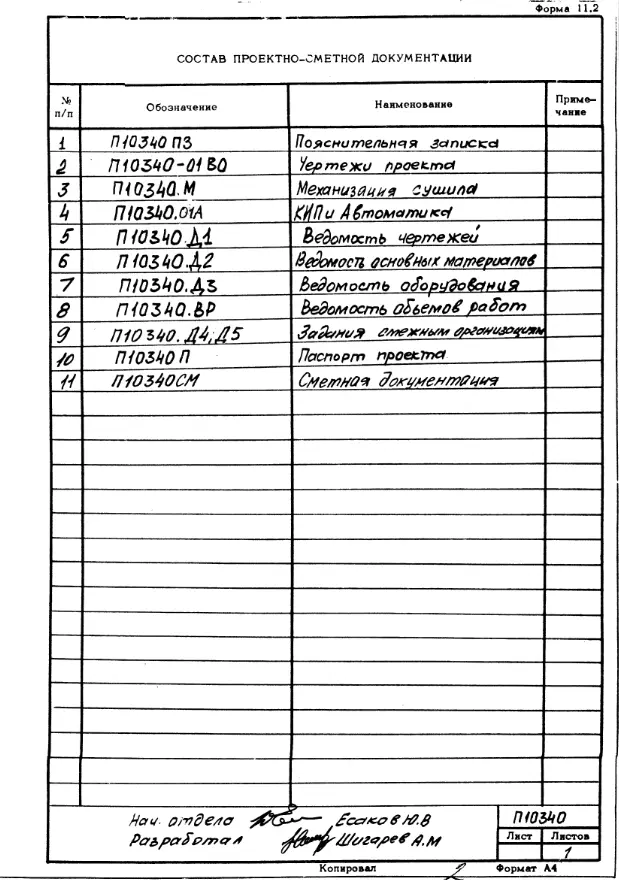 Форма 11.2
СОСТАВ ПРОЕКТНО-СМЕТНОЙ ДОКУМЕНТАЦИИ
№ п/п Обозначение Наименование Приме-чание
1 П10340 ПЗ Пояснительная записка
2 П10340-01 ВО Чертежи проекта
3 П10340.М Механизация сушила
4 П10340.01А КИП и Автоматика
5 П10340.Д1 Ведомость чертежей
6 П10340.Д2 Ведомость основных материалов
7 П10340.Д3 Ведомость оборудования
8 П10340.ВР Ведомость объемов работ
9 П10340.Д4,Д5 Задания смежным организациям
10 П10340 П Паспорт проекта
11 П10340СМ Сметная документация
Нач. отдела Есаков Ю.В П10340
Разработал Шигарев А.М Лист Листов
1
Копировал 2 Формат А4